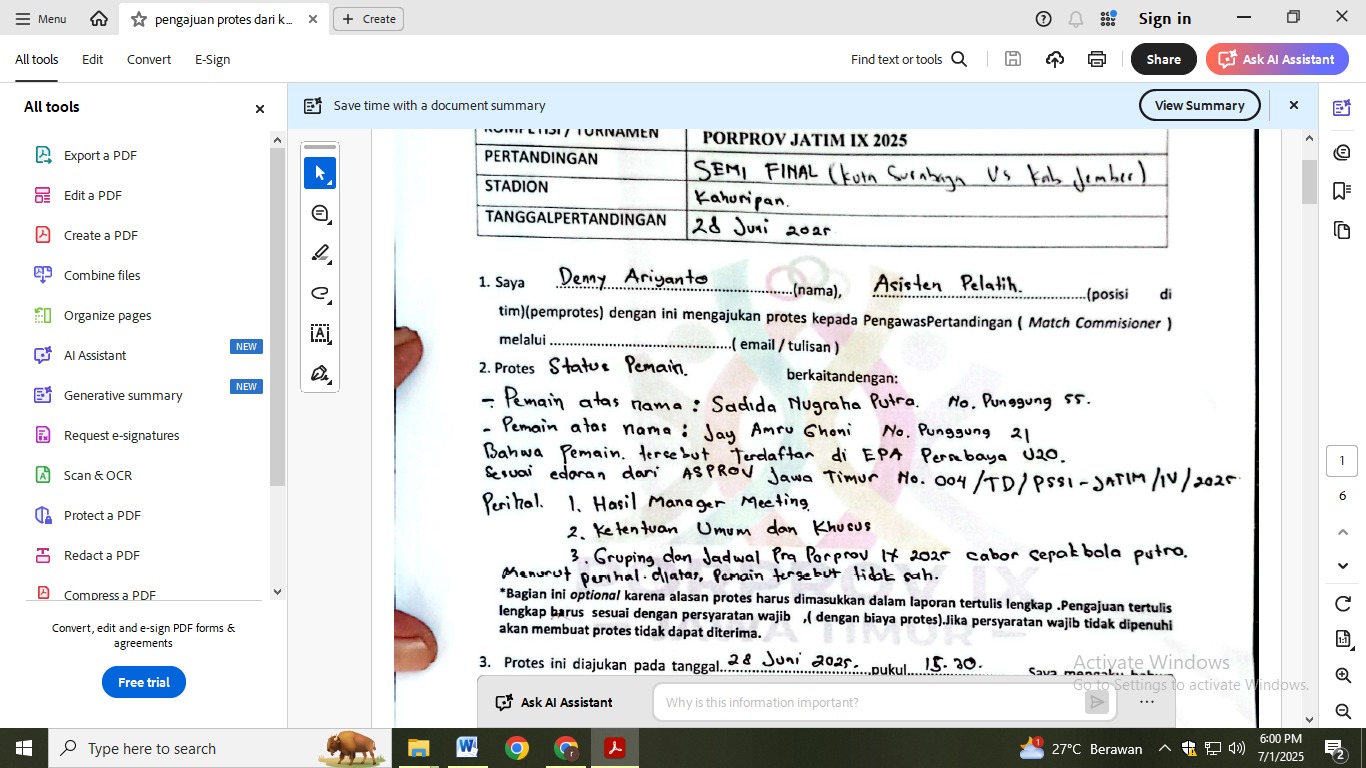 Menu
pengajuan protes dari k...
Create
Sign in
All tools
Edit
Convert
E-Sign
Find text or tools
Share
Ask AI Assistant
All tools
Export a PDF
Edit a PDF
Create a PDF
Combine files
Organize pages
AI Assistant
NEW
Generative summary
NEW
Request e-signatures
Scan & OCR
Protect a PDF
Redact a PDF
Compress a PDF
Convert, edit and e-sign PDF forms & agreements
Free trial
Save time with a document summary
View Summary
KOMPETISI / TURNAMEN PORPROV JATIM IX 2025
PERTANDINGAN SEMI FINAL (Kota Surabaya Vs Kab Jember)
STADION Kahuripan.
TANGGALPERTANDINGAN 28 Juni 2025
1. Saya Denny Ariyanto (nama), Asisten Pelatih. (posisi di
tim)(pemprotes) dengan ini mengajukan protes kepada PengawasPertandingan ( Match Commisioner )
melalui ........................................( email / tulisan )
2. Protes Status Pemain. berkaitandengan:
- Pemain atas nama : Sadida Nugraha Putra. No. Punggung 55.
- Pemain atas nama : Jay Amru Ghoni No. Punggung 21
Bahwa Pemain. tersebut Terdaftar di EPA Persebaya U20.
Sesuai edaran dari ASPROV Jawa Timur No. 004/TD/PSSI-JATIM/IV/2025.
Perihal. 1. Hasil Manager Meeting.
2. Ketentuan Umum dan Khusus
3. Gruping dan Jadwal Pra Porprov IX 2025 cabor sepakbola putra.
Menurut perihal diatas, Pemain tersebut tidak sah.
*Bagian ini optional karena alasan protes harus dimasukkan dalam laporan tertulis lengkap .Pengajuan tertulis
lengkap harus sesuai dengan persyaratan wajib ,( dengan biaya protes).Jika persyaratan wajib tidak dipenuhi
akan membuat protes tidak dapat diterima.
PORPROV IX
JAWA TIMUR
3. Protes ini diajukan pada tanggal 28 Juni 2025. pukul 15.30. Saya mengaku bahwa
Activate Windows
Go to Settings to activate Windows.
Ask AI Assistant
Why is this information important?
1
6
Type here to search
27°C Berawan
6:00 PM
7/1/2025
2